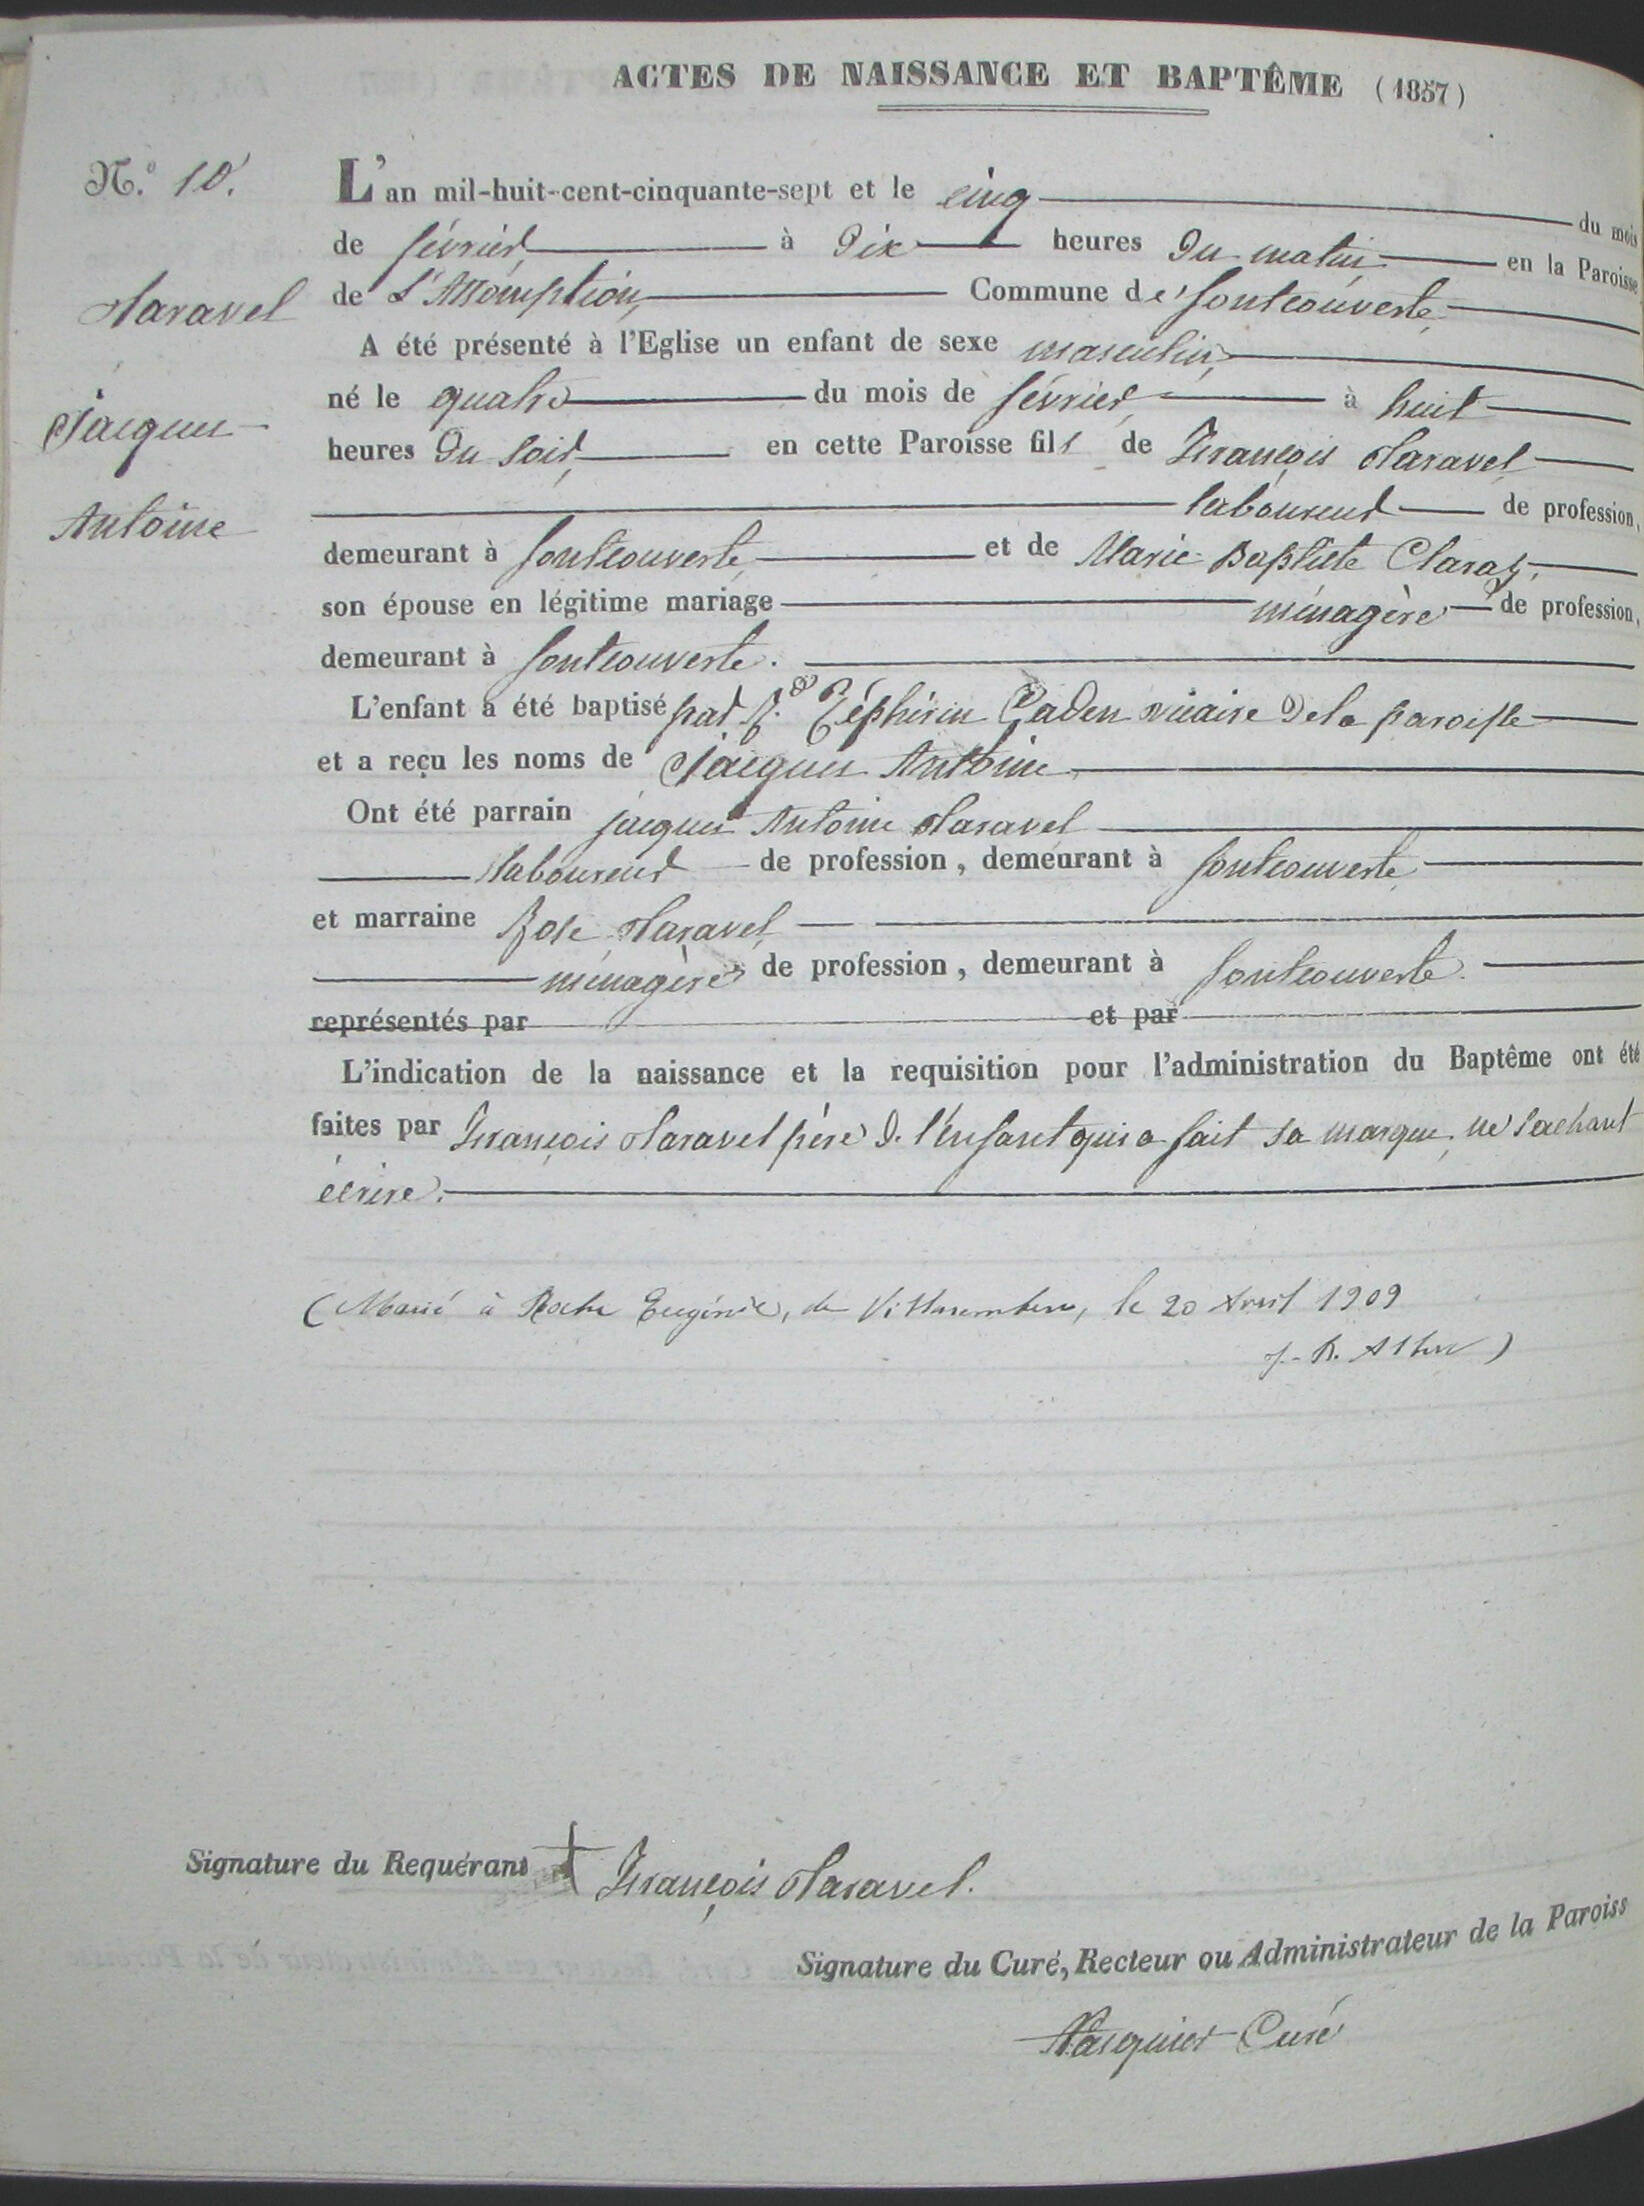 ACTES DE NAISSANCE ET BAPTÊME (1857)
N.º 10.
L'an mil-huit-cent-cinquante-sept et le cinq du mois
de février à dix heures du matin en la Paroisse
de L'Assomption, Commune de fontcouverte,
A été présenté à l'Eglise un enfant de sexe masculin,
né le quatre du mois de février, à huit
heures du soir, en cette Paroisse fils de François Taravel
laboureur de profession,
demeurant à fontcouverte, et de Marie Baptiste Claraz,
son épouse en légitime mariage ménagère de profession,
demeurant à fontcouverte.
L'enfant a été baptisé par Zéphirin vicaire de la paroisse
et a reçu les noms de Jacques Antoine
Ont été parrain jacques Antoine Taravel
laboureur de profession, demeurant à fontcouverte,
et marraine Rose Taravel,
ménagère de profession, demeurant à fontcouverte.
représentés par et par
L'indication de la naissance et la requisition pour l'administration du Baptême ont été
faites par François Taravel père de l'enfant qui a fait sa marque, ne sachant
écrire.
Taravel
Jacques
Antoine
(Marié à Eugénie, de le 20 Avril 1909
Signature du Requérant François Taravel.
Signature du Curé, Recteur ou Administrateur de la Paroiss
Pasquier Curé